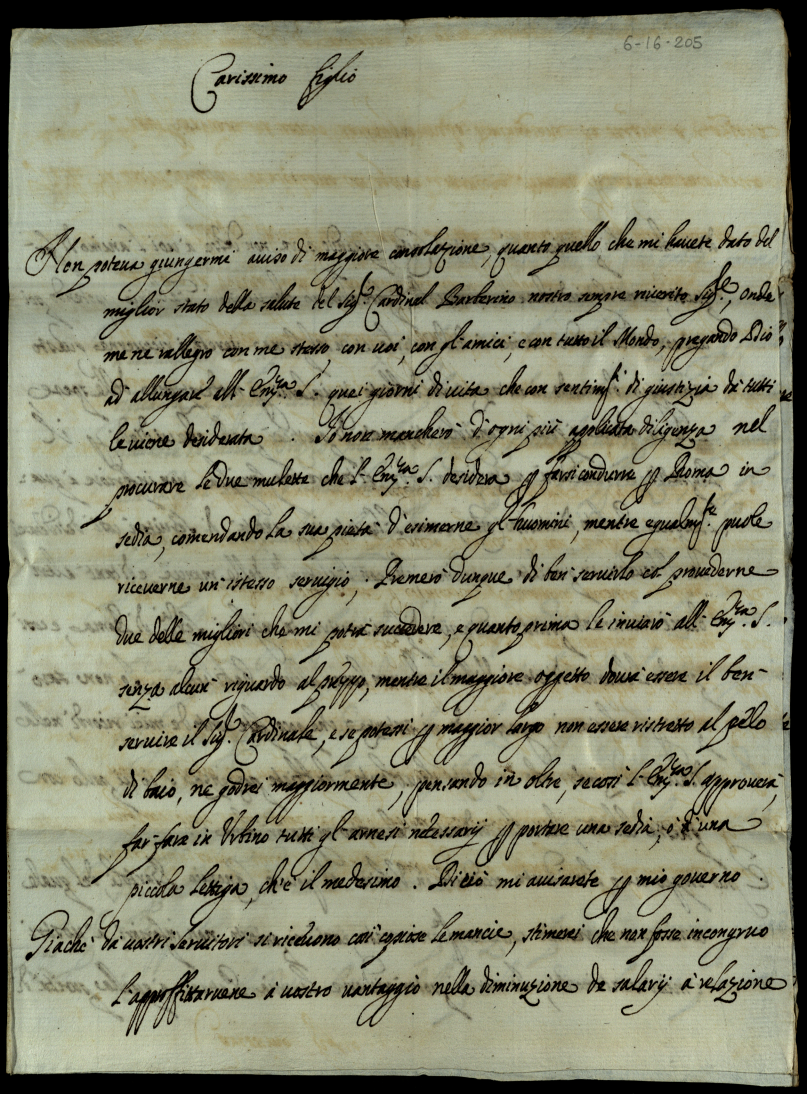 6-16-205
Carissimo figlio
Non poteua giungermi auiso di maggiore consolatione, quanto quello che mi hauete dato del
miglior stato della salute del Sig.r Cardinal Barberino nostro sempre riuerito Sig.re, onde
me ne rallegro con me stesso, con uoi, con gl'amici, e con tutto il Mondo, pregando Dio
ad allungare all' Em.za S. quei giorni di uita che con sentim.ti di giustizia da tutti
le uiene desiderata. Io non mancherò d'ogni più applicata diligenza nel
procurare le due mulette che l' Em.za S. desidera p farsi condurre p Roma in
sedia, comendando la sua pietà d'esimerne gl'huomini, mentre egualm.te puole
riceuerne un'istesso seruigio. Premerò dunque di ben seruirlo col prouederne
due delle migliori che mi potrà succedere, e quanto prima le inuiarò all' Em.za S.
senza alcun riguardo al prezzo, mentre il maggiore oggetto dourà essere il ben
seruire il Sig.r Cardinale, e se potessi p maggior largo non essere ristretto al pelo
di baio, ne godrei maggiormente, pensando in oltre, se così l' Em.za S. approuerà,
far fare in Urbino tutti gl'arnesi necessarij p portare una sedia, ò d'una
piccola lettiga, ch'è il medesimo. Di ciò mi auisarete p mio gouerno.
Giachè da uostri seruitori si riceuono così copiose le mancie, stimerei che non fosse incongruo
l'approffittaruene à uostro uantaggio nella diminuzione de salarij à relazione